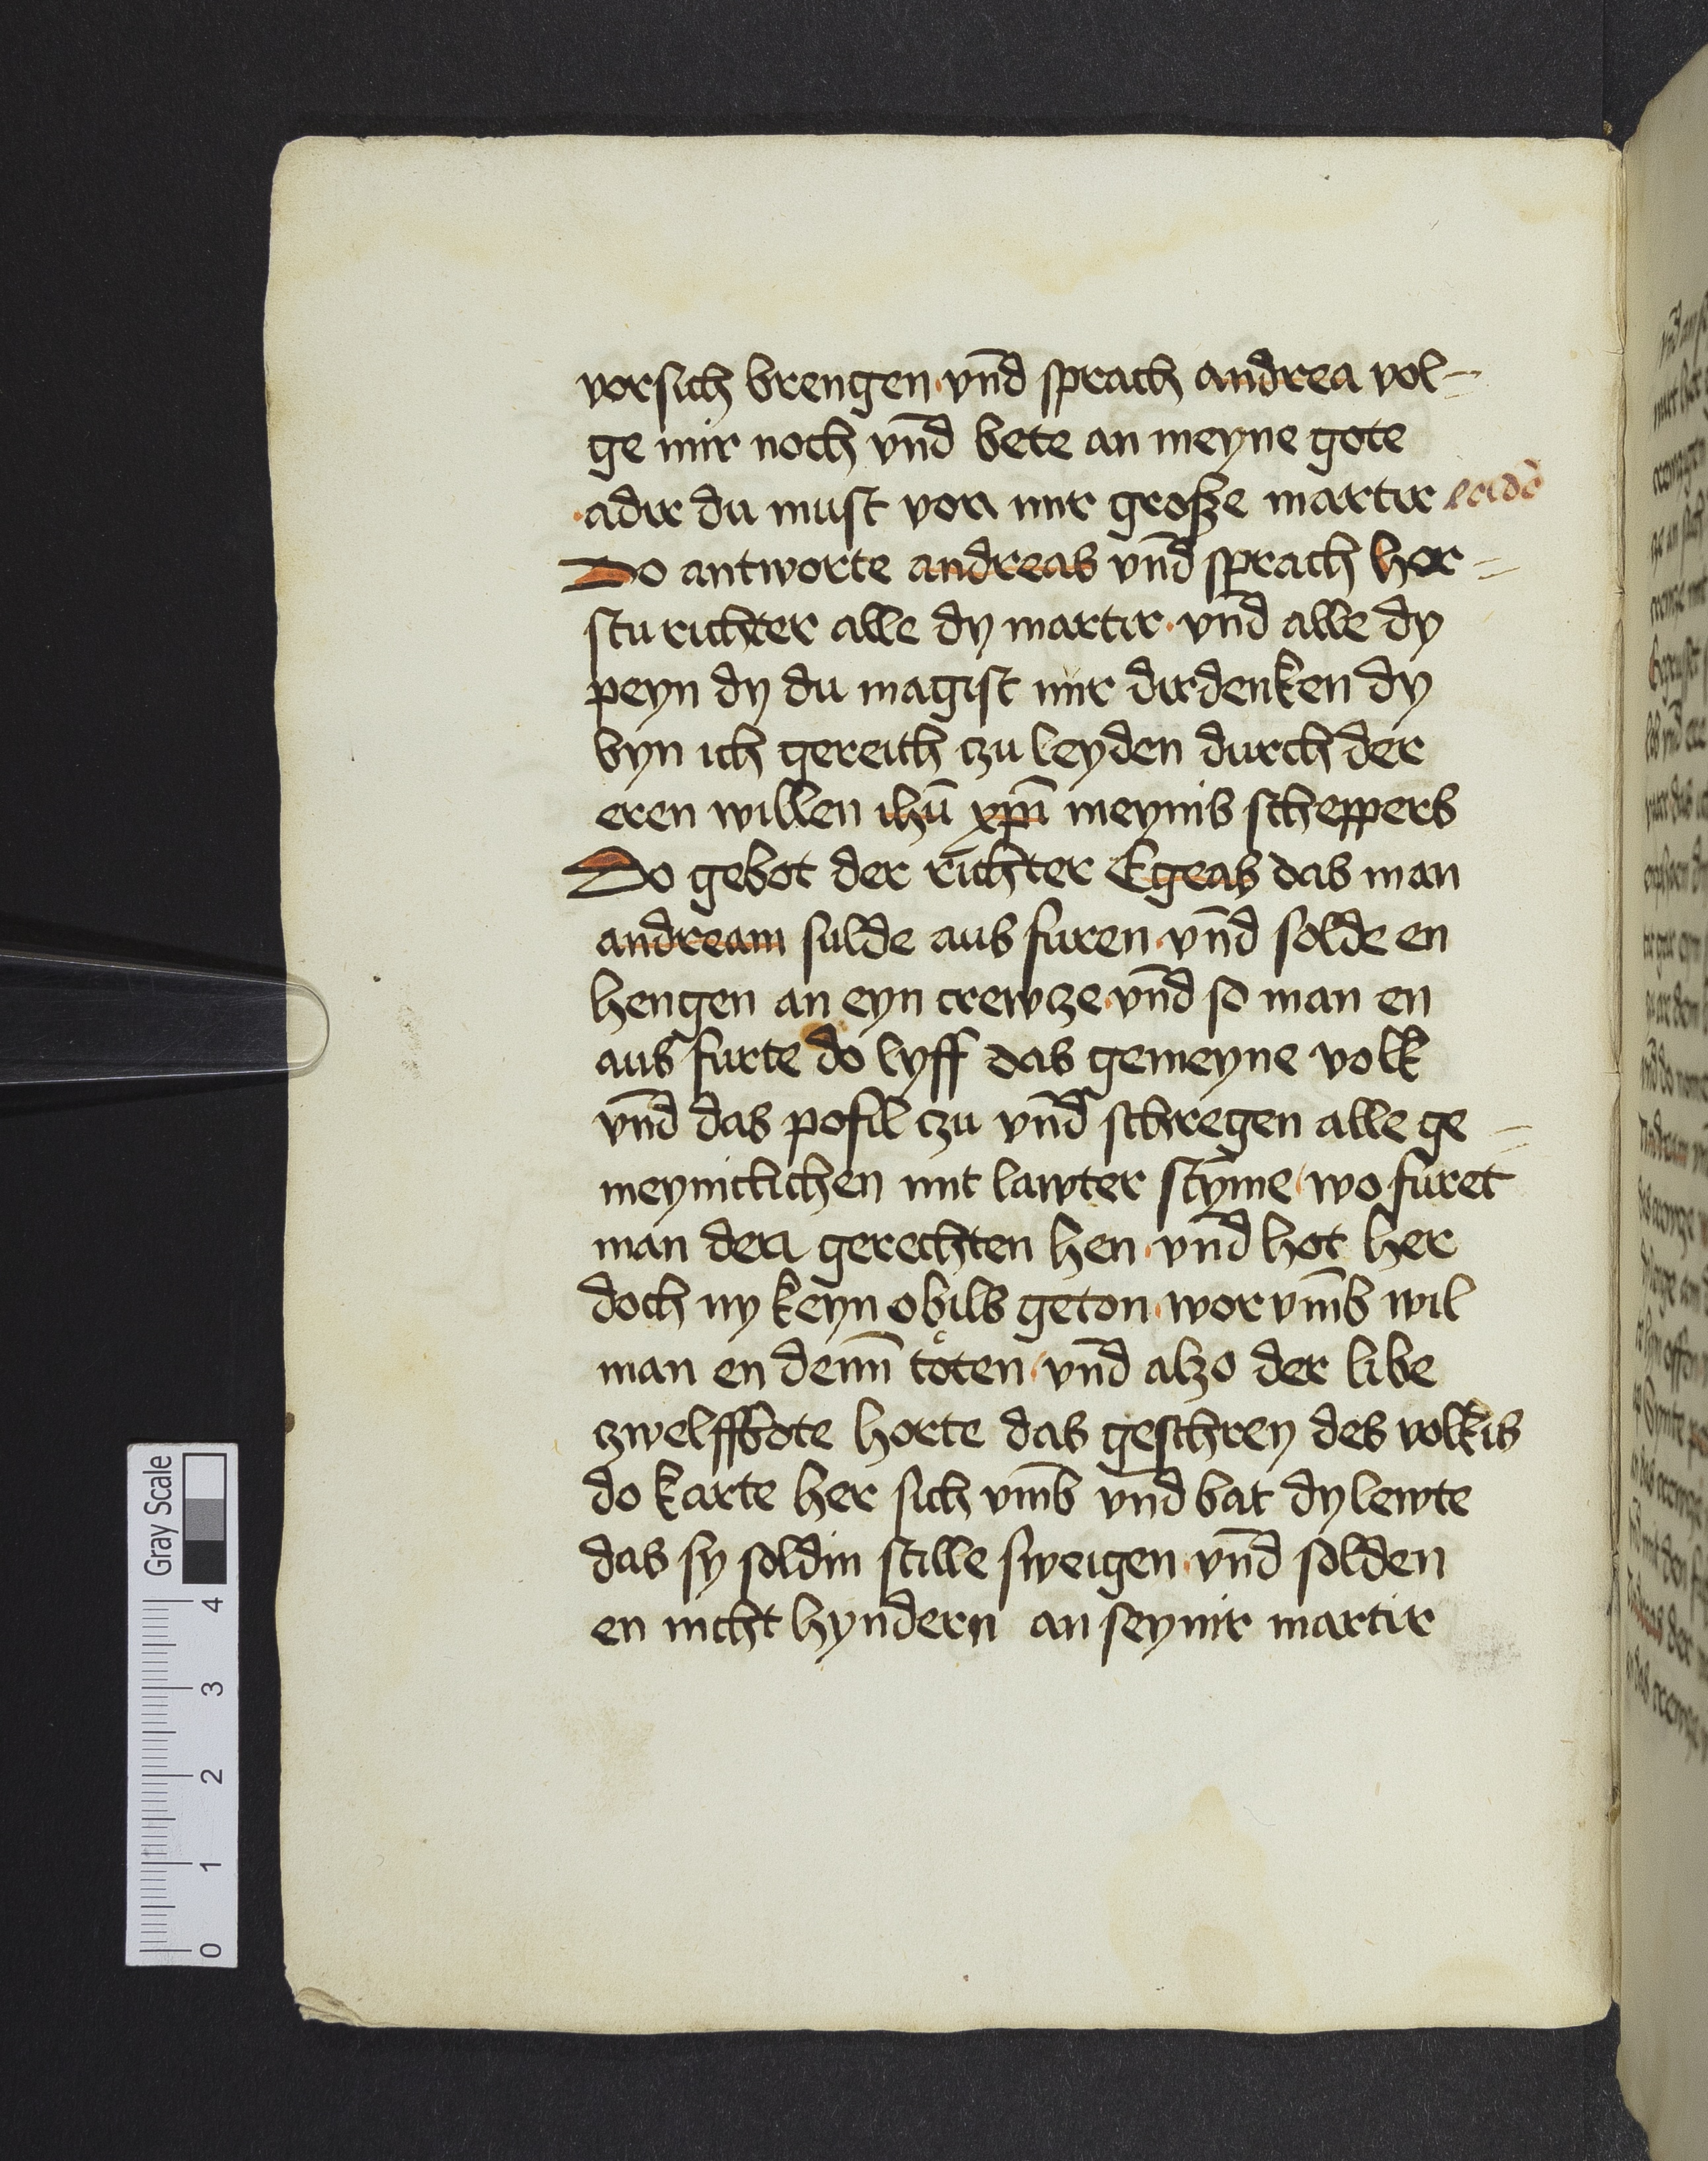 vorsich brengen · vn̄d sprach andrea vol-
ge mir noch vn̄d bete an meyne gote
· adir du must von mir große martir leidē
Do antworte andreas vn̄d sprach hor-
stu richter alle dy martir · vn̄d alle dy
peyn dy du magist mir dirdenken dy
byn ich gereith czu leyden durch der
eren willen ihū xp̄i meynis scheppers
Do gebot der richter Egeas das man
andream sulde aus furen · vn̄d solde en
hengen an eyn crewcze · vn̄d so man en
aus furte do lyff das gemeyne volk
vn̄d das pofil czu vn̄d schregen alle ge-
meyniclichen mit lawter stȳme · wo furet
man den gerechten hen · vn̄d hot her
doch ny keyn obils geton · wor vm̄b wil
man en den̄n toten · vn̄d alzo der libe
czwelffbote horte das geschrey des volkis
do karte her sich vm̄b vn̄d bat dy lewte
das sy soldin stille sweigen · vn̄d solden
en nicht hyndern an seynir martir
Gray Scale
4
3
2
1
0